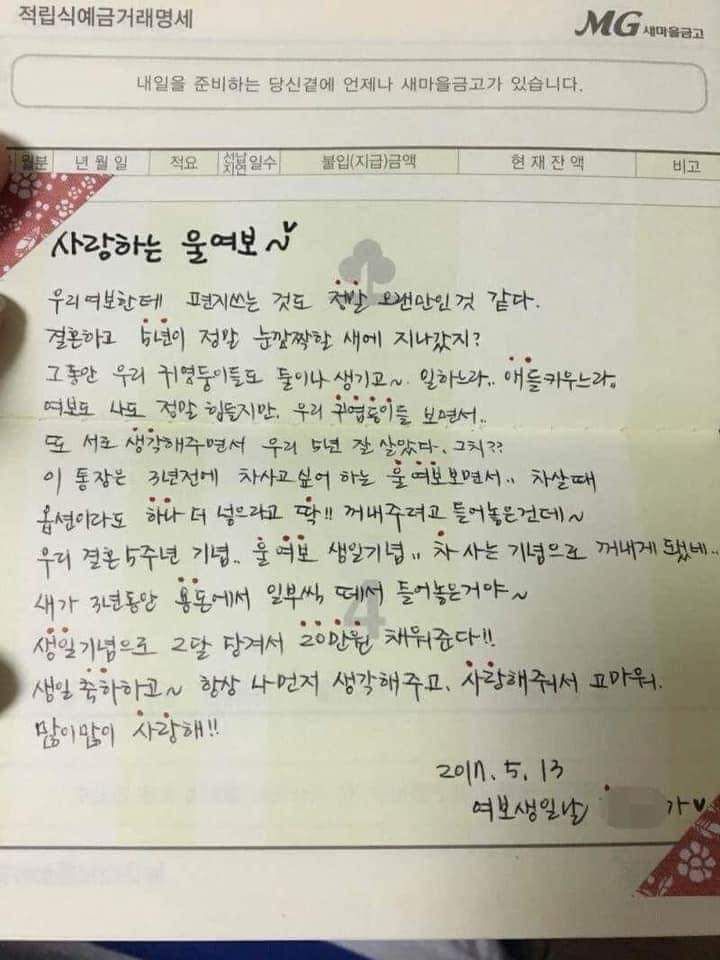 적립식예금거래명세
MG 새마을금고
내일을 준비하는 당신곁에 언제나 새마을금고가 있습니다.
월분 년월일 적요 선납 지연 일수 불입(지급)금액 현재잔액 비고
사랑하는 울여보~♥
우리여보한테 편지쓰는 것도 정말 오랜만인것 같다.
결혼하고 5년이 정말 눈깜짝할 새에 지나갔지?
그동안 우리 귀염둥이들도 둘이나 생기고~ 일하느라.. 애들키우느라.
여보도 나도 정말 힘들지만, 우리 귀염둥이들 보면서..
또 서로 생각해주면서 우리 5년 잘 살았다. 그치??
이 통장은 3년전에 차사고싶어 하는 울여보보면서.. 차살때
옵션이라도 하나 더 넣으라고 딱!! 꺼내주려고 들어놓은건데~
우리 결혼 5주년 기념.. 울여보 생일기념.. 차 사는 기념으로 꺼내게 됐네..
내가 3년동안 용돈에서 일부씩 떼서 들어놓은거야~
4
생일기념으로 2달 당겨서 20만원 채워준다!!
생일 축하하고~ 항상 나먼저 생각해주고, 사랑해줘서 고마워.
많이많이 사랑해!!
2017. 5. 13
여보생일날 가♥